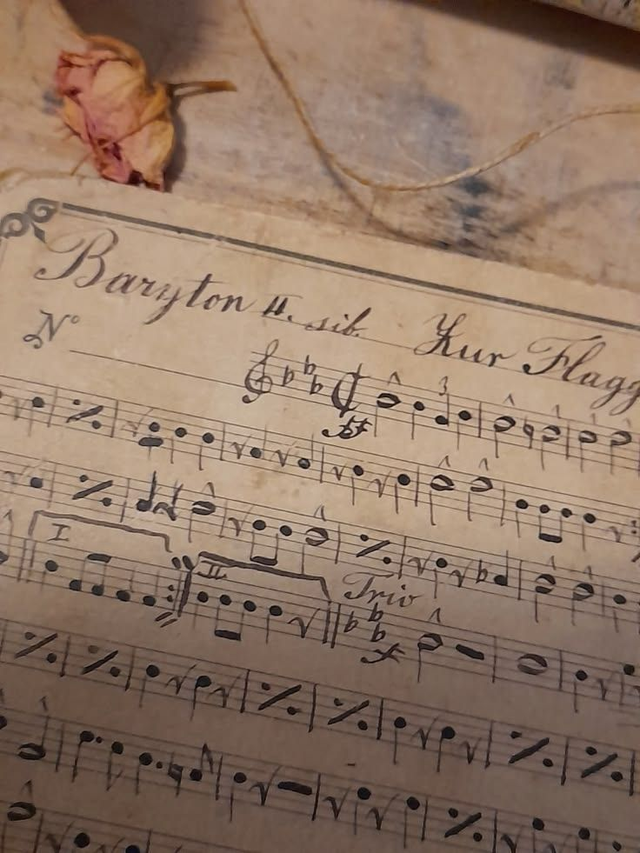 Baryton II. sib. Zur Flagg
Nº
ff 3
I
II Trio
f